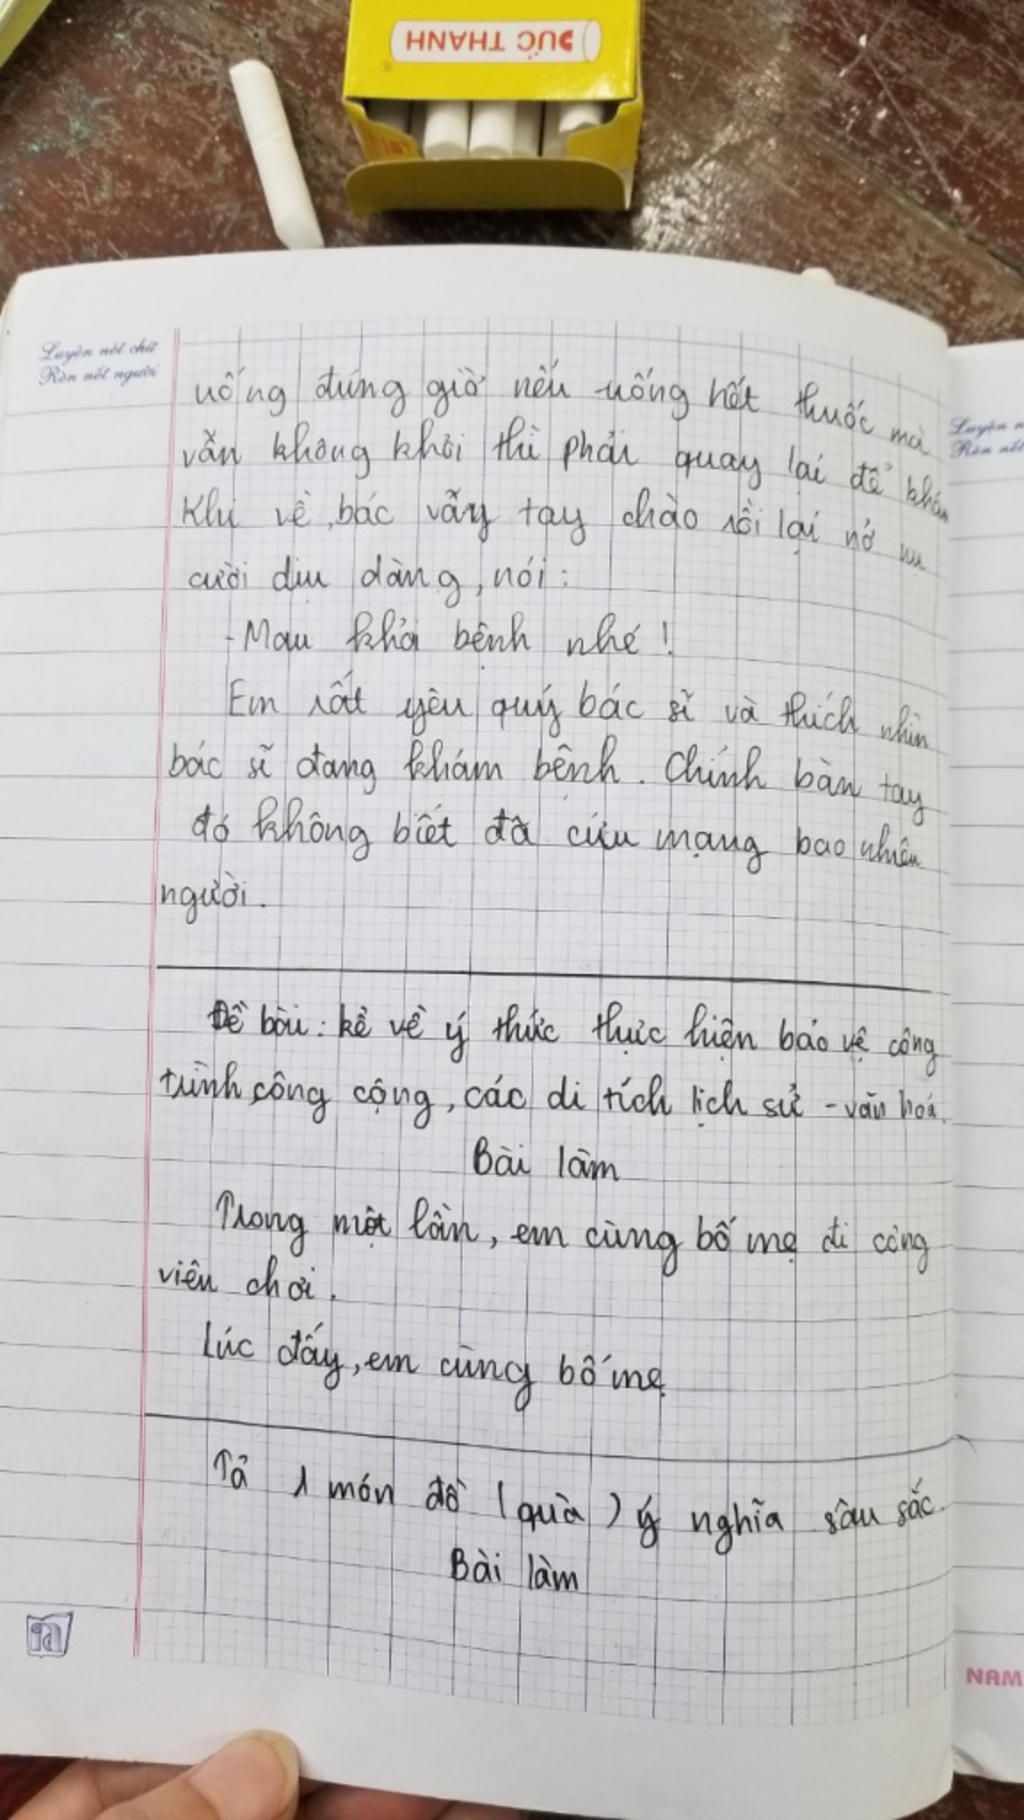 ĐỨC THANH
Luyện nét chữ
Rèn nết người
uống đúng giờ nếu uống hết thuốc mà
vẫn không khỏi thì phải quay lại để khám
Khi về, bác vẫy tay chào rồi lại nở nụ
cười dịu dàng, nói:
- Mau khỏi bệnh nhé!
Em rất yêu quý bác sĩ và thích nhìn
bác sĩ đang khám bệnh. Chính bàn tay
đó không biết đã cứu mạng bao nhiêu
người.
Đề bài: kể về ý thức thực hiện bảo vệ công
trình công cộng, các di tích lịch sử - văn hoá.
Bài làm
Trong một lần, em cùng bố mẹ đi công
viên chơi.
Lúc đấy, em cùng bố mẹ
Tả 1 món đồ (quà) ý nghĩa sâu sắc.
Bài làm
Luyện n
Rèn nết
NAM